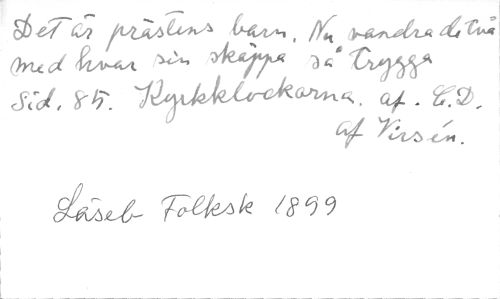 Det är prästens barn. Nu vandra de två
med hvar sin skäppa så trygga
Sid. 85. Kyrkklockorna. af. C.D.
af Virsén.
Läseb Folksk 1899